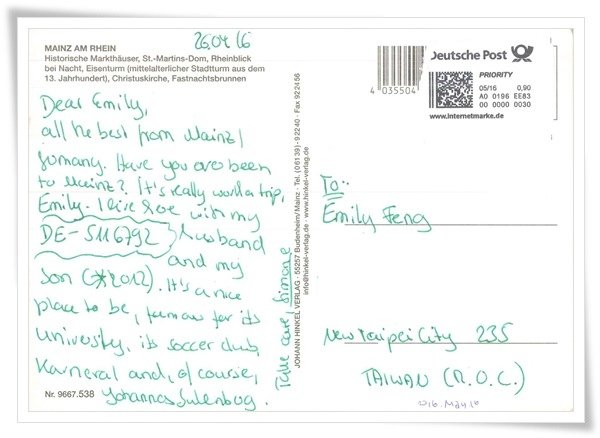 26.04.16
MAINZ AM RHEIN
Historische Markthäuser, St.-Martins-Dom, Rheinblick
bei Nacht, Eisenturm (mittelalterlicher Stadtturm aus dem
13. Jahrhundert), Christuskirche, Fastnachtsbrunnen
Dear Emily,
all the best from Mainz /
Germany. Have you ever been
to Mainz? It's really worth a trip,
Emily. I live here with my
DE-5116792 husband
and my
son (*2012). It's a nice
place to be, famous for its
University, its soccer club,
Karneval and, of course,
Johannes Gutenberg.
Take care, Simone
Nr. 9667.538
JOHANN HINKEL VERLAG · 55257 Budenheim/Mainz · Tel. (06139) · 92240 · Fax 922456
info@hinkel-verlag.de · www.hinkel-verlag.de
4 035504
Deutsche Post
PRIORITY
05/16 0,90
A0 0196 EE83
00 0000 0030
www.internetmarke.de
To:
Emily Feng
New Taipei City 235
TAIWAN (R.O.C.)